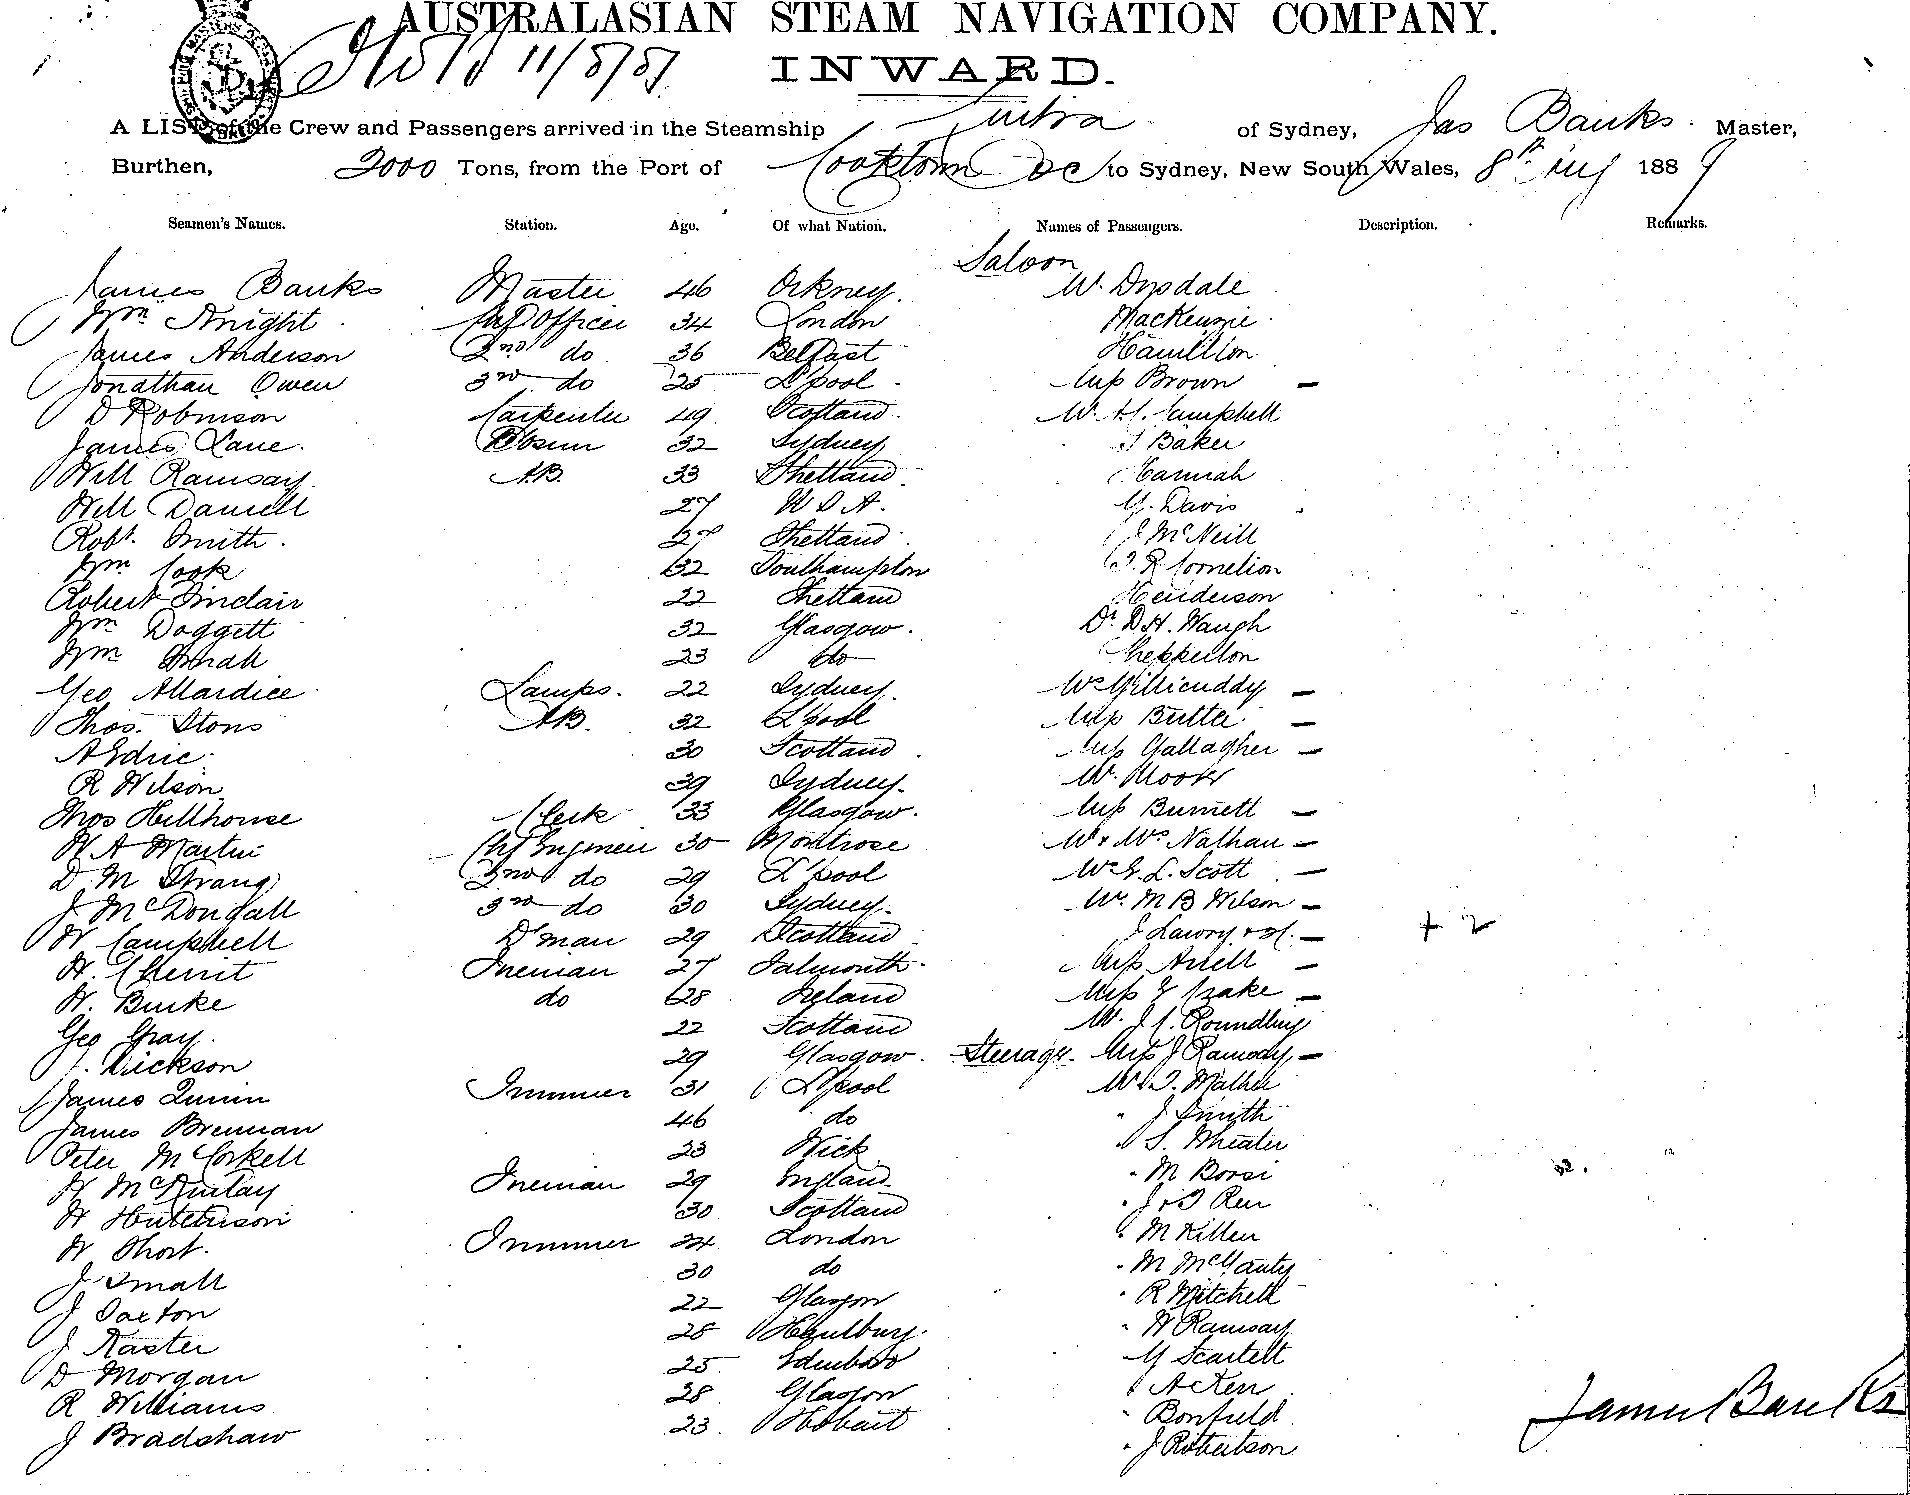 AUSTRALASIAN STEAM NAVIGATION COMPANY.
11/8/87
INWARD.
A LIST of the Crew and Passengers arrived in the Steamship of Sydney, Jas Banks Master,
Burthen, 2000 Tons, from the Port of Cooktown &c to Sydney, New South Wales, 8th Aug 1887
Seamen's Names. Station. Age. Of what Nation. Names of Passengers. Description. Remarks.
Saloon
James Banks Master 46 Orkney. W. Drysdale
Wm Knight Officer 34 London MacKenzie
James Anderson 2nd do 36 Belfast Hamilton
Jonathan Owen 3rd do 25 L'pool Miss Brown —
D Robinson Carpenter 49 Scotland W. H. Campbell
James Lane. Bosun 32 Sydney T Baker
Will Ramsay. AB. 33 Shetland Hannah
Will Daniell 27 U S A. G. Davis
Robt. Smith. 27 Shetland. J McNeill
Wm Cook 32 Southampton Cornelion
Robert Sinclair 22 Shetland Henderson
Wm Doggett 32 Glasgow. Dr D H. Waugh
Wm Small 23 do Shepperton
Geo Allardice Lamps. 22 Sydney. McGillicuddy —
Thos. Stons AB. 32 L'pool Miss Butler —
30 Scotland Miss Gallagher —
R Wilson 39 Sydney. W. Moore
Thos Hillhouse Clerk 33 Glasgow. Miss Burnett —
W A Martin Chf Engineer 30 Montrose Mr & Mrs Nathan —
D M Strang 2nd do 29 L'pool L. Scott —
J McDougall 3rd do 30 Sydney. M B Wilson —
W Campbell D'man 29 Scotland J Lawry —
+ 2
W. Cherrit Fireman 27 Falmouth. Miss —
W. Burke do 28 Ireland Miss —
Geo Gray. 22 Scotland Roundbuy
Dickson 29 Glasgow. Steerage. J Ramsay —
James Quinn Trimmer 31 L'pool Mather
James Brennan 46 do " J Smith
Peter McCorkell 23 Wick " S. Wheater
W McKinlay Fireman 29 England " M Borsi
W Hutchison 30 Scotland " J & T Ren
W Short. Trimmer 24 London " M Killen
J Small 30 do " M
J Saxton 22 Glasgow " R Mitchell
J Kaster 28 " W Ramsay
D Morgan 25 Edinboro " G Scartett
R Williams 28 Glasgow Acken
J Bradshaw 23. Hobart " Bonfield
" J Robertson
James Banks